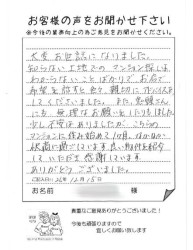 お客様の声をお聞かせ下さい
※今後の業務向上の為ご意見をお聞かせ下さい
大変お世話になりました。
知らない土地でのマンション探しは
わからないことばかりで、お店で
希望を伝え色々、親切に
下さいました。また、急な
にも、無理なお願いを
少し不安もありましたが、こちらの
マンションに住み始めて1ヶ月、何
快適に過ごしています。良い物件を紹介し
ていただき感謝しています。
ありがとうございました。
ご記入日 26年12月15日
お名前
様
貴重なご意見ありがとうございました!
今後も頑張りますので
宜しくお願い致します